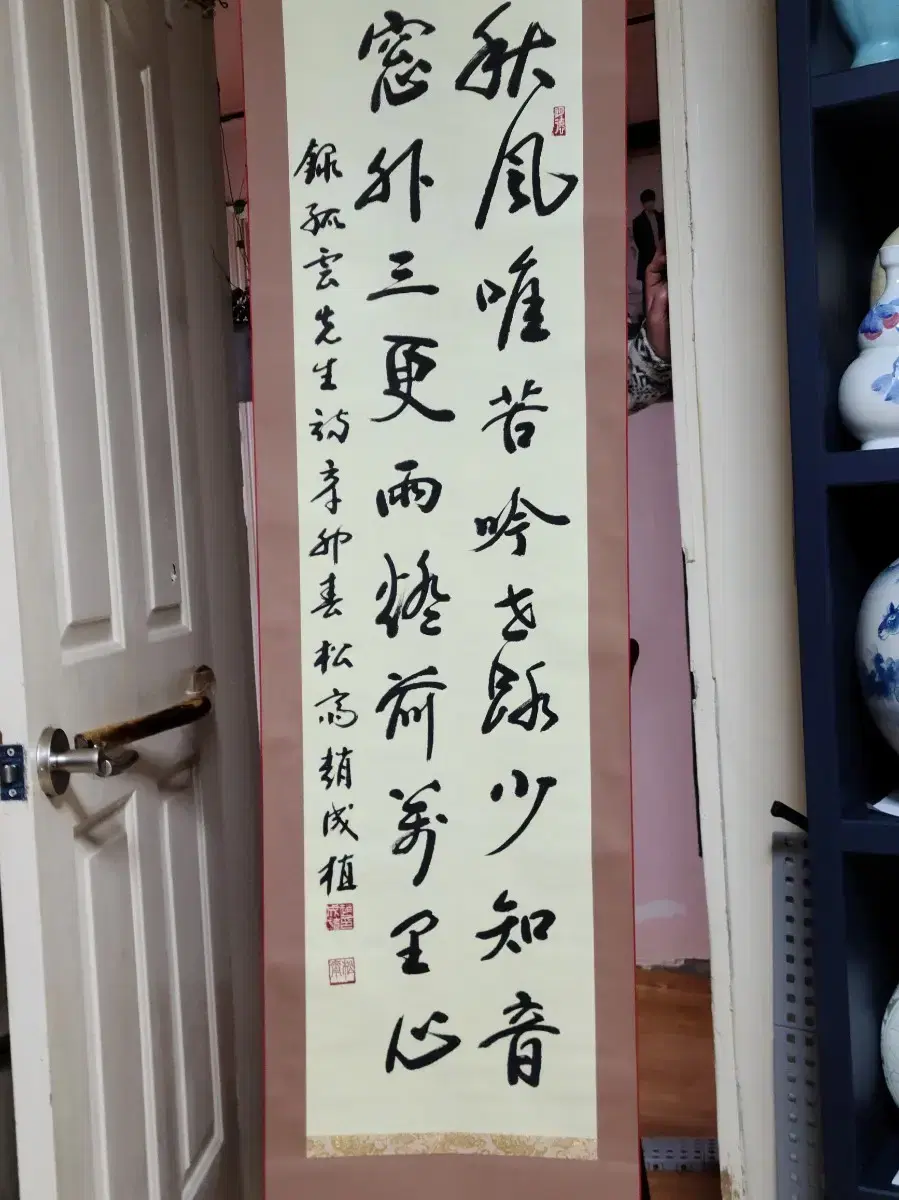 秋風唯苦吟世路少知音
窓外三更雨燈前萬里心
錄孤雲先生詩辛卯春松齋趙成植